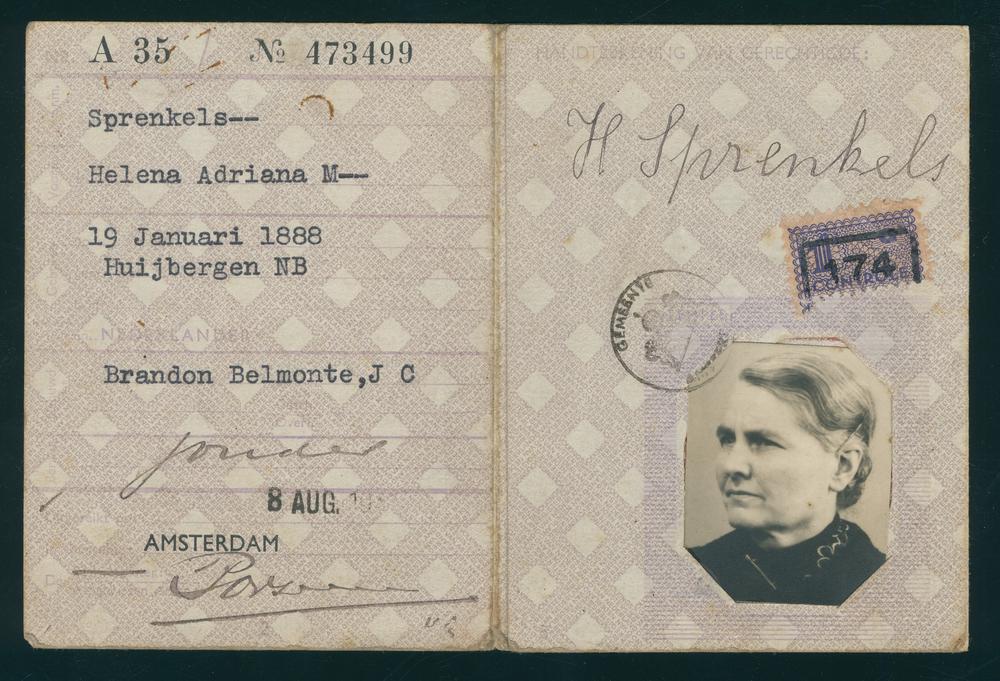 A 35 № 473499
Sprenkels--
Helena Adriana M--
19 Januari 1888
Huijbergen NB
NEDERLANDER
Brandon Belmonte,J C
Overl.
8 AUG.
AMSTERDAM
HANDTEEKENING VAN GERECHTIGDE:
H Sprenkels
174
CONTROLE
GEMEENTE